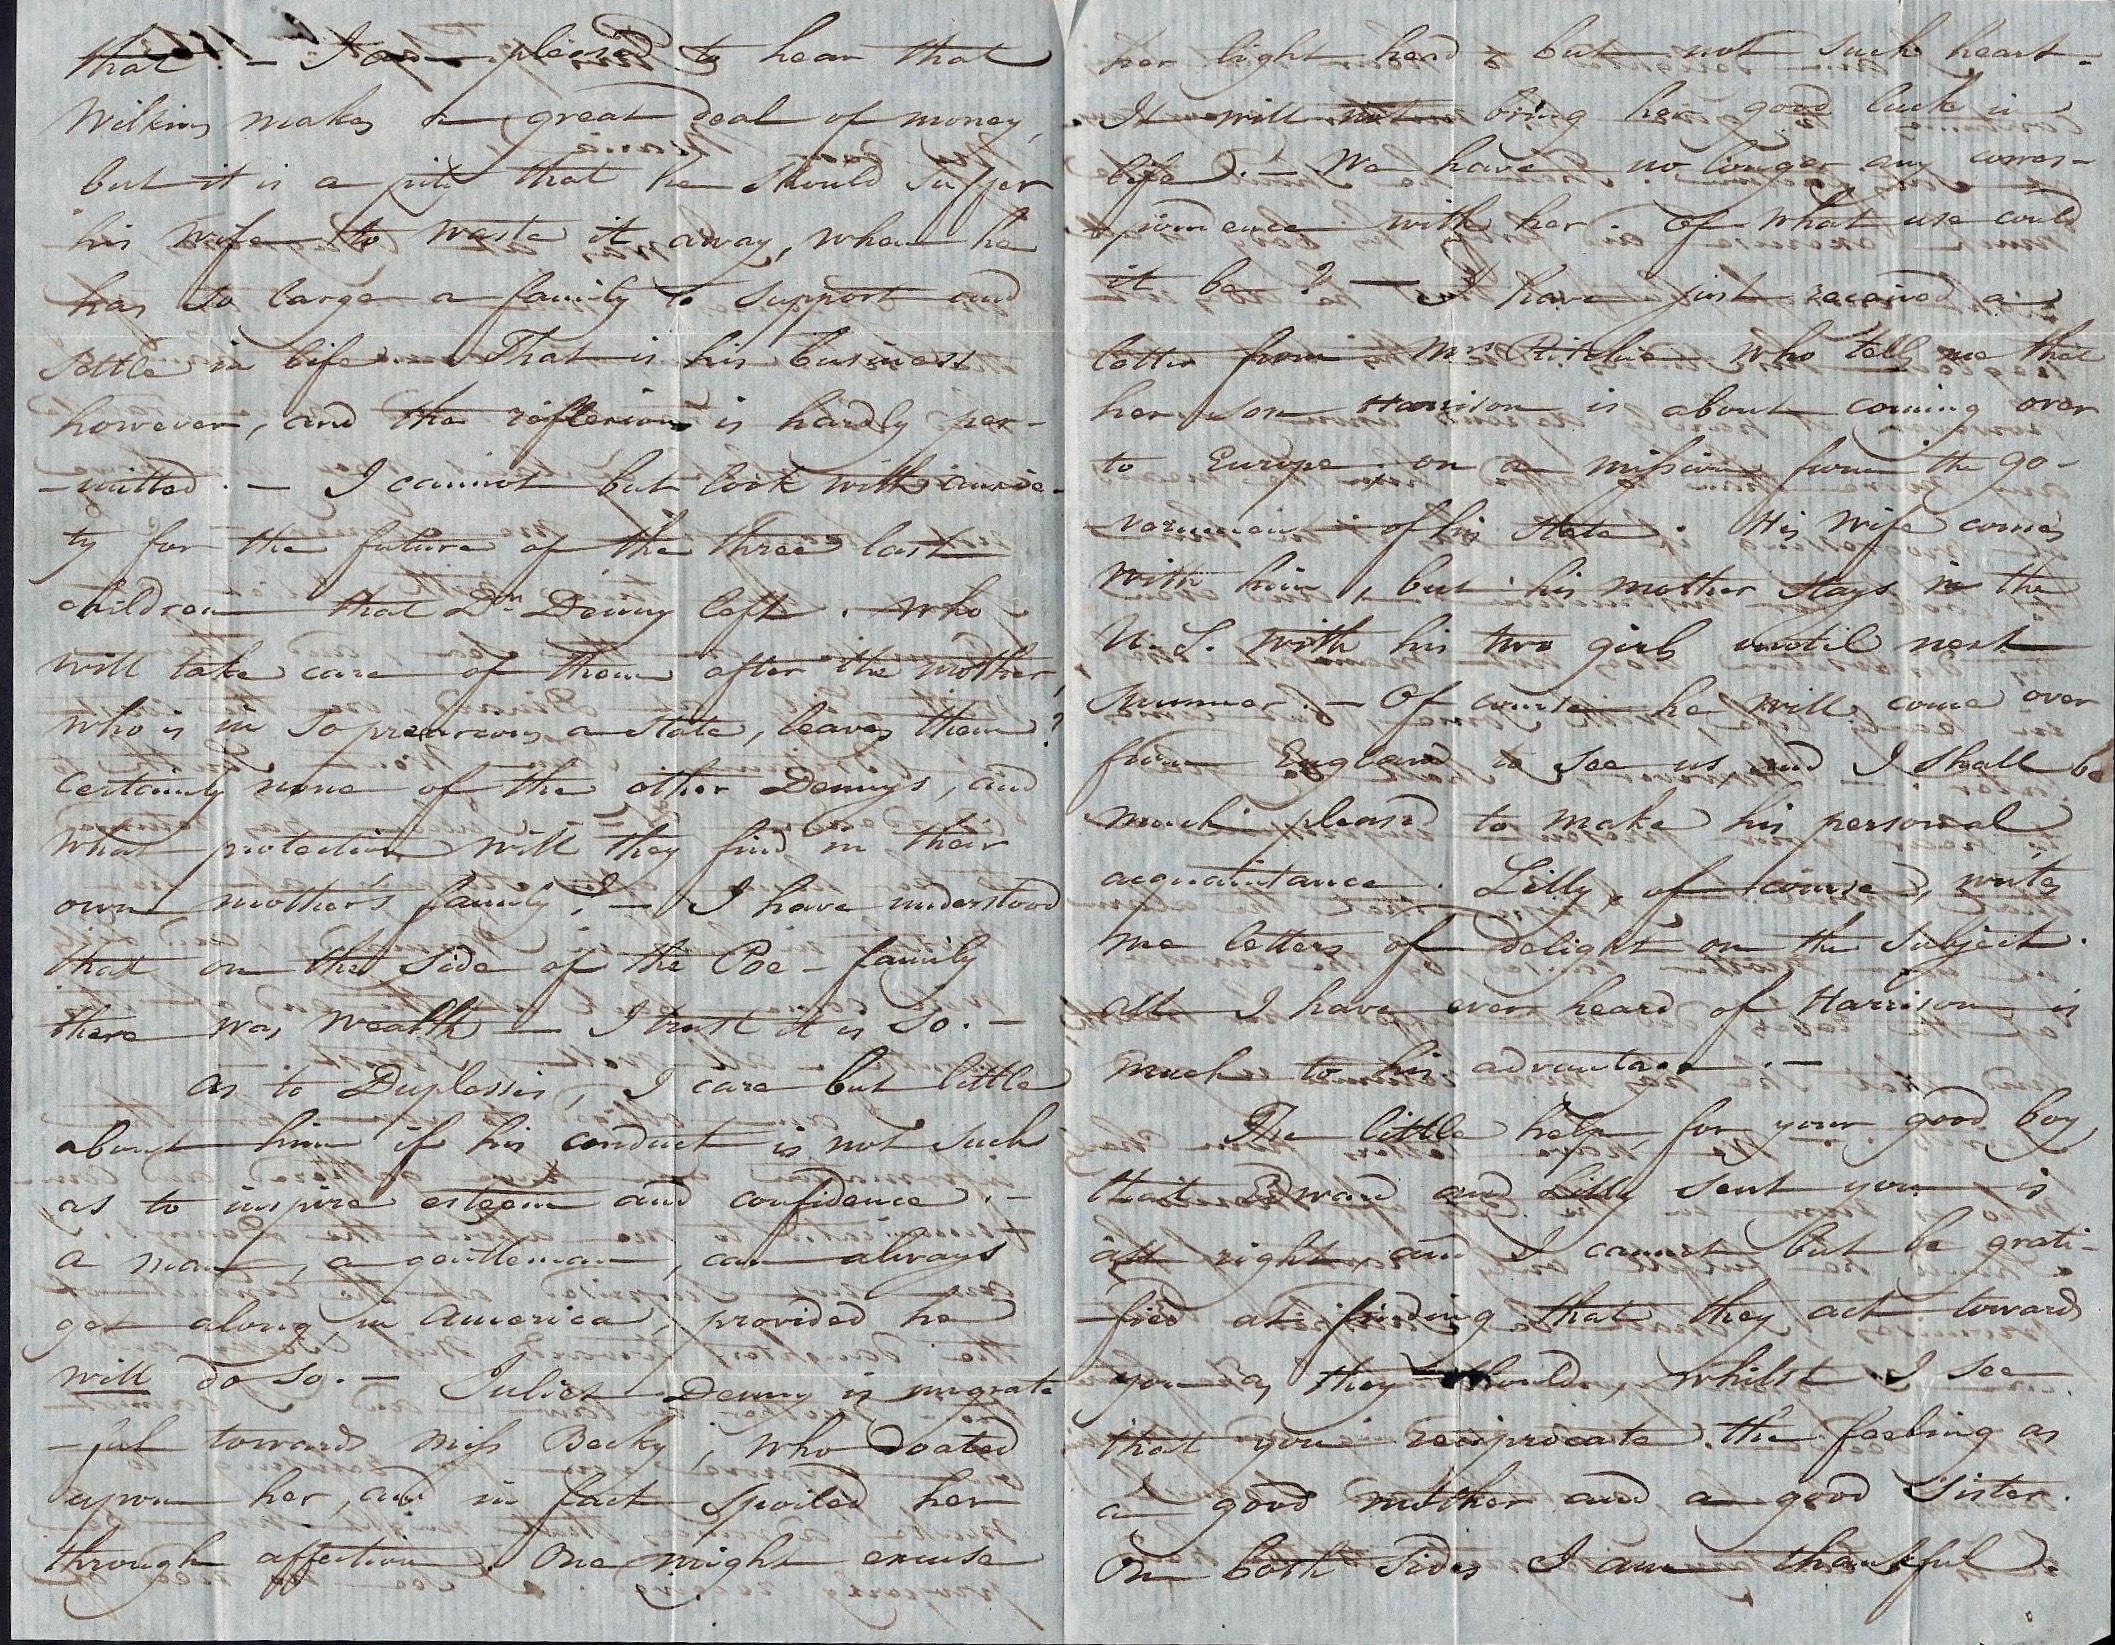 that. — I am pleased to hear that
Wilkins makes a great deal of money,
but it is a pity that he should suffer
his wife to waste it away, when he
has so large a family to support and
settle in life. — That is his business
however, and the reflexion is hardly per-
-mitted. — I cannot but look with anxie-
ty for the future of the three last
children that Dr. Denny left. Who
will take care of them after the mother,
who is in so precarious a state, leaves them?
Certainly none of the other Dennys, and
what protection will they find in their
own mother's family? — I have understood
that on the side of the Poe - family
there was wealth — I trust it is so. —
As to Duplessis, I care but little
about him if his conduct is not such
as to inspire esteem and confidence. —
A man, a gentleman, can always
get along in America, provided he
will do so. — Juliet Denny is ungrate
-ful towards Miss Becky, who doated
upon her, and in fact spoiled her
through affection. One might excuse
her light head & but not such heart.
It will not bring her good luck in
life. — We have no longer any corres-
pondence with her. Of what use could
it be? — I have just received a
letter from Mrs. Ritchie who tells me that
her son Harrison is about coming over
to Europe on a mission from the go-
vernment of his State. His wife comes
with him, but his mother stays in the
U. S. with his two girls until next
summer. — Of course he will come over
from England to see us and I shall be
much pleased to make his personal
acquaintance. Lilly, of course, writes
me letters of delight on the subject.
All I have ever heard of Harrison is
much to his advantage. —
The little help for your good boy
that Edward and Lilly sent you is
all right and I cannot but be grati-
-fied at finding that they act towards
you as they should, whilst I see
that you reciprocate the feeling as
a good mother and a good sister.
On both sides I am thankful.